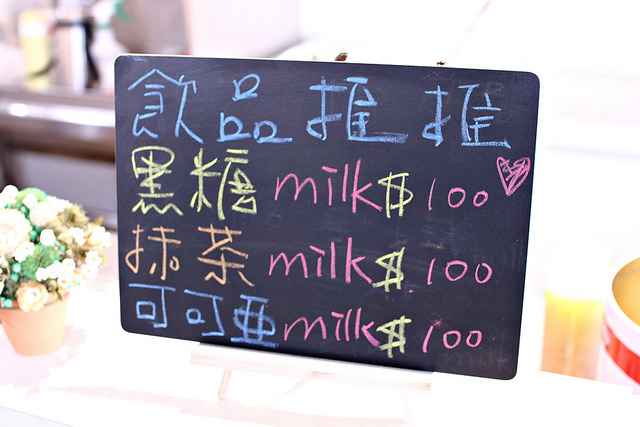 飲品推推
黑糖milk$100
抹茶milk$100
可可亜milk$100